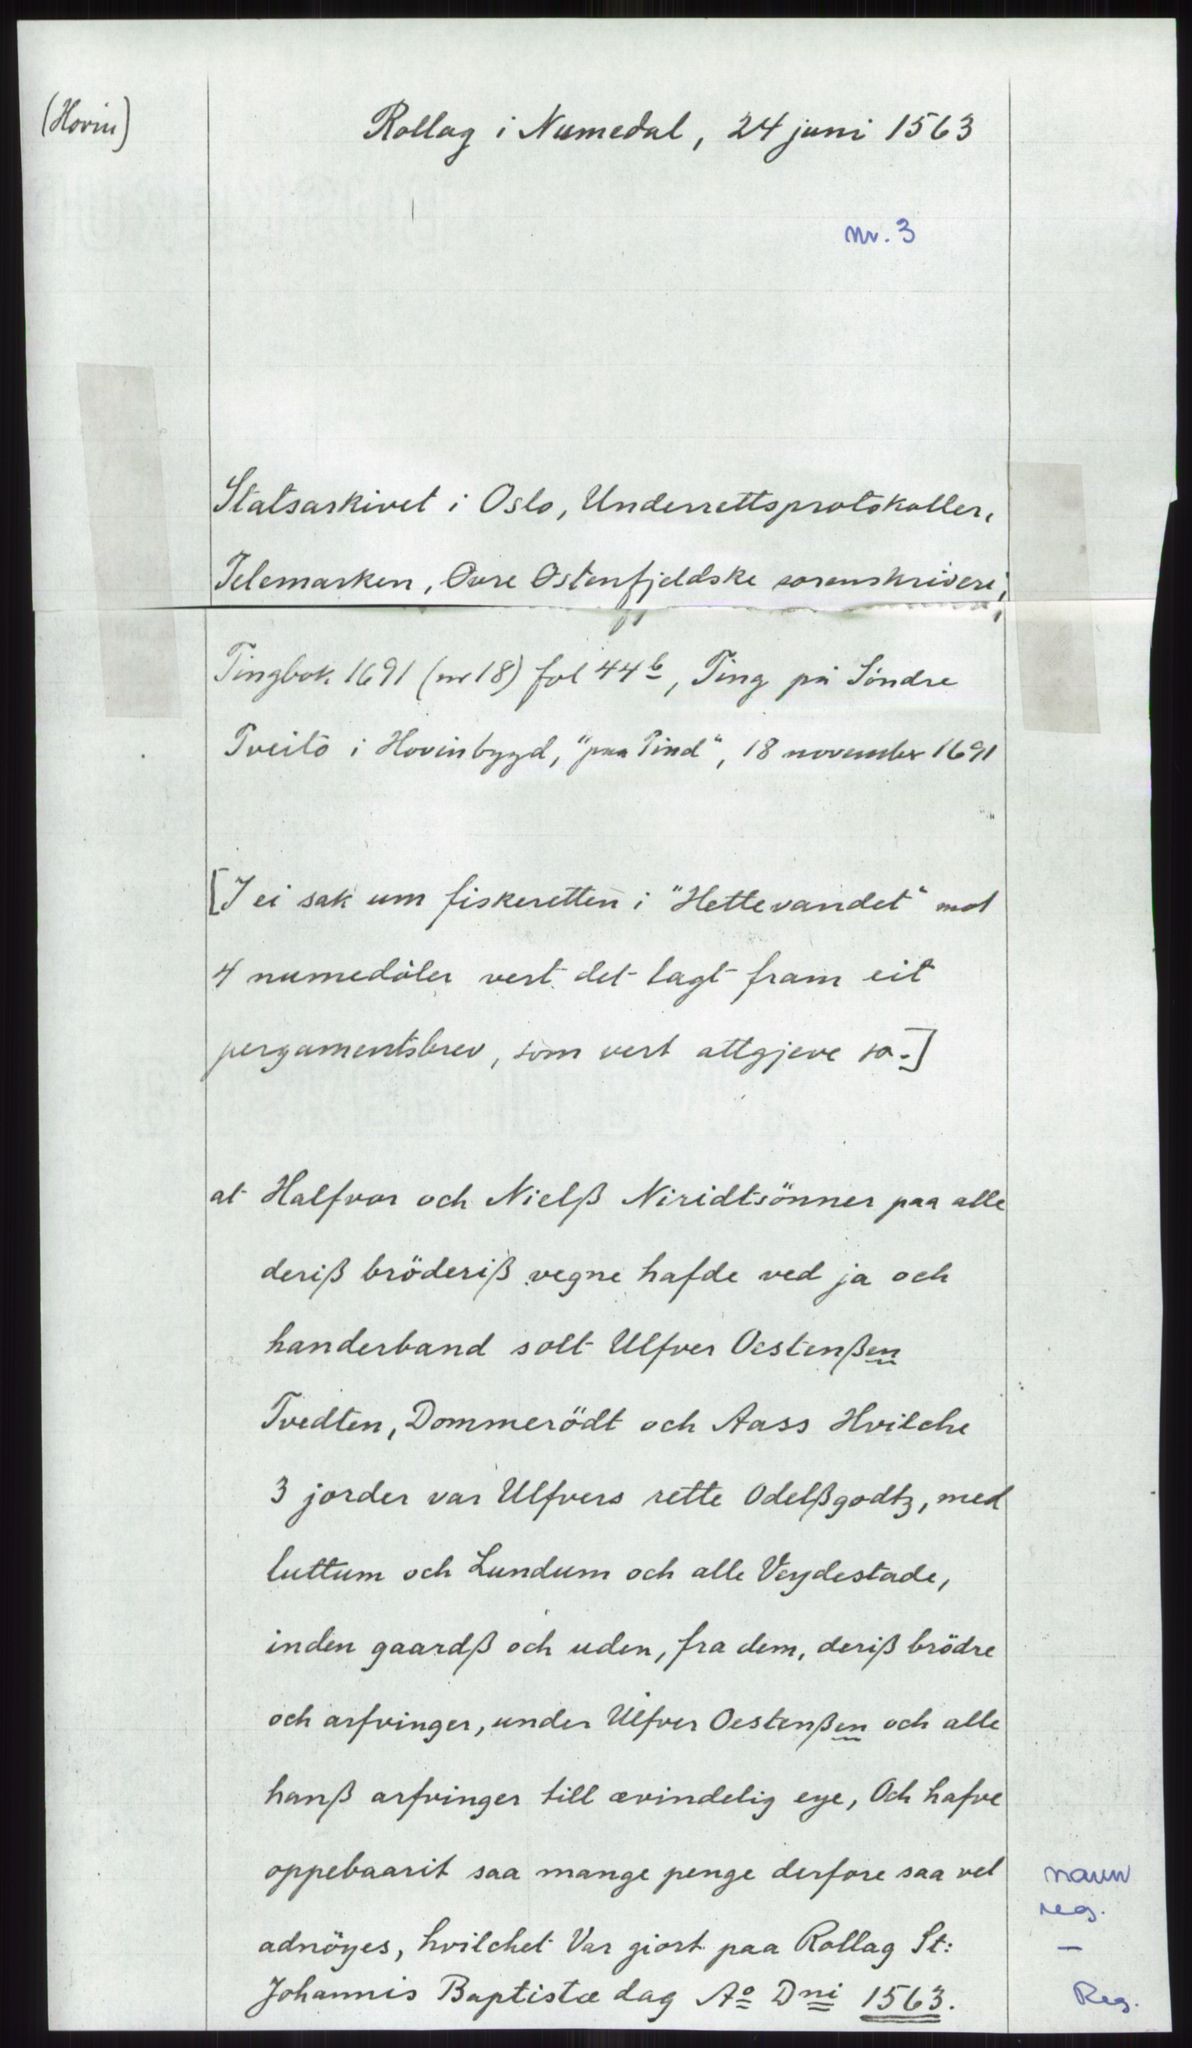 (Hovin)
Rollag i Numedal, 24 juni 1563
nr. 3
Statsarkivet i Oslo, Underrettsprotokoller,
Telemarken, Øvre Østenfjeldske sorenskriveri,
Tingbok 1691 (nr 18) fol 44b, Ting på Söndre
Tveito i Hovinbygd, "paa Tind", 18 november 1691
[I ei sak um fiskeretten i "Hettevandet" mot
4 numedöler vert det lagt fram eit
pergamentsbrev, som vert attgjeve so.]
at Halfvor och Nielß Niridtsönner paa alle
deriß bröderiß vegne hafde ved ja och
handerband solt Ulfver Oestenßen
Tvedten, Dommerödt och Aass Hvilche
3 jorder var Ulfvers rette Odelßgodtz, med
luttum och Lundum och alle Veydestade,
inden gaardß och uden, fra dem, deriß brödre
och arfvinger, under Ulfver Oestenßen och alle
hanß arfvinger till ævindelig eye, Och hafve
oppebaarit saa mange penge derfore saa vel
adnöyes, hvilchet Var giort paa Rollag St:
Johannis Baptistæ dag Ao Dni 1563.
navn
reg.
—
Reg.